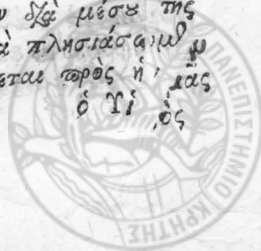 διὰ μέσου της
πλησιάσωμεν
εται πρὸς ἡμᾶς
ὁ Υἱὸς
ΠΑΝΕΠΙΣΤΗΜΙΟ ΚΡΗΤΗΣ